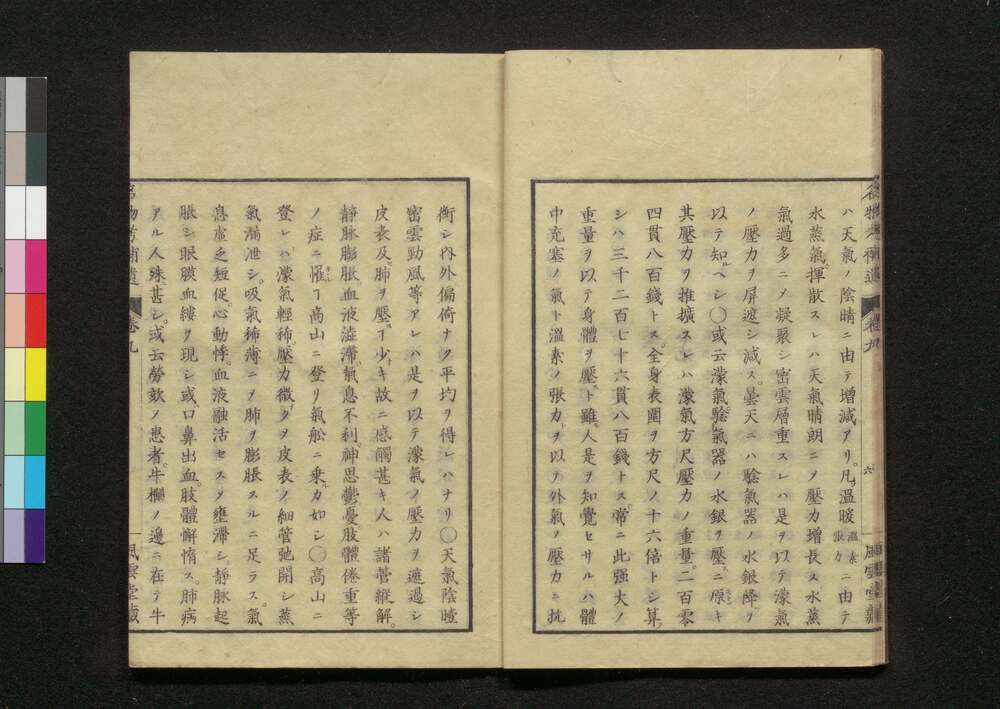 ハ天氣ノ陰晴ニ由テ増減アリ。凡ソ溫暖溫素張力ニ由テ
水蒸氣揮散スレハ天氣晴朗ニヲ壓力増長ス水蒸
氣過多ニメ凝聚シ密雲層重スレハ是ヲ以テ濛氣
ノ壓力ヲ屏遮シ減ス。曇天ニハ驗氣器ノ水銀降ヲ
以テ知ルヘシ〇或云濛氣驗氣器ノ水銀ヲ壓スニ原キ
其壓力ヲ推擴スレハ濛氣方尺壓力ノ重量。二百零
四貫八百錢トス。全身表圍ヲ方尺ノ十六倍トシ算
シハ三千二百七十六貫八百錢トス。常ニ此强大ノ
重量ヲ以テ身體ヲ壓スト雖。人是ヲ知覺セサルハ體
中充塞ノ氣ト溫素ノ張力ヲ以テ外氣ノ壓力ニ抗
風雲堂藏
衡シ內外偏倚ナク平均ヲ得レハナリ〇天氣陰曀
密雲勁風等アレハ是ヲ以テ濛氣ノ壓力ヲ遮遏シ
皮表及肺ヲ壓スヿ少キ故ニ感觸甚キ人ハ諸管縱解。
靜脉膨脹血液澁滯氣息不利。神思鬱憂肢體倦重等
ノ症ニ罹ヿ高山ニ登リ氣舩ニ乘スカ如シ〇高山ニ
登レハ濛氣輕稀。壓力微ク。皮表ノ細管弛開シ蒸
氣漏泄シ。吸氣稀薄ニヲ肺ヲ膨脹スルニ足ラス。氣
息虛乏短促。心動悸。血液融活セスヲ壅滯シ。靜脉起
脹シ眼膜血縷ヲ現シ或口鼻出血。肢體懈惰ス。肺病
アル人殊ニ甚シ。或云勞欬ノ患者。牛欄ノ邊ニ在テ牛
窮物考補遺
卷九
風雲堂藏